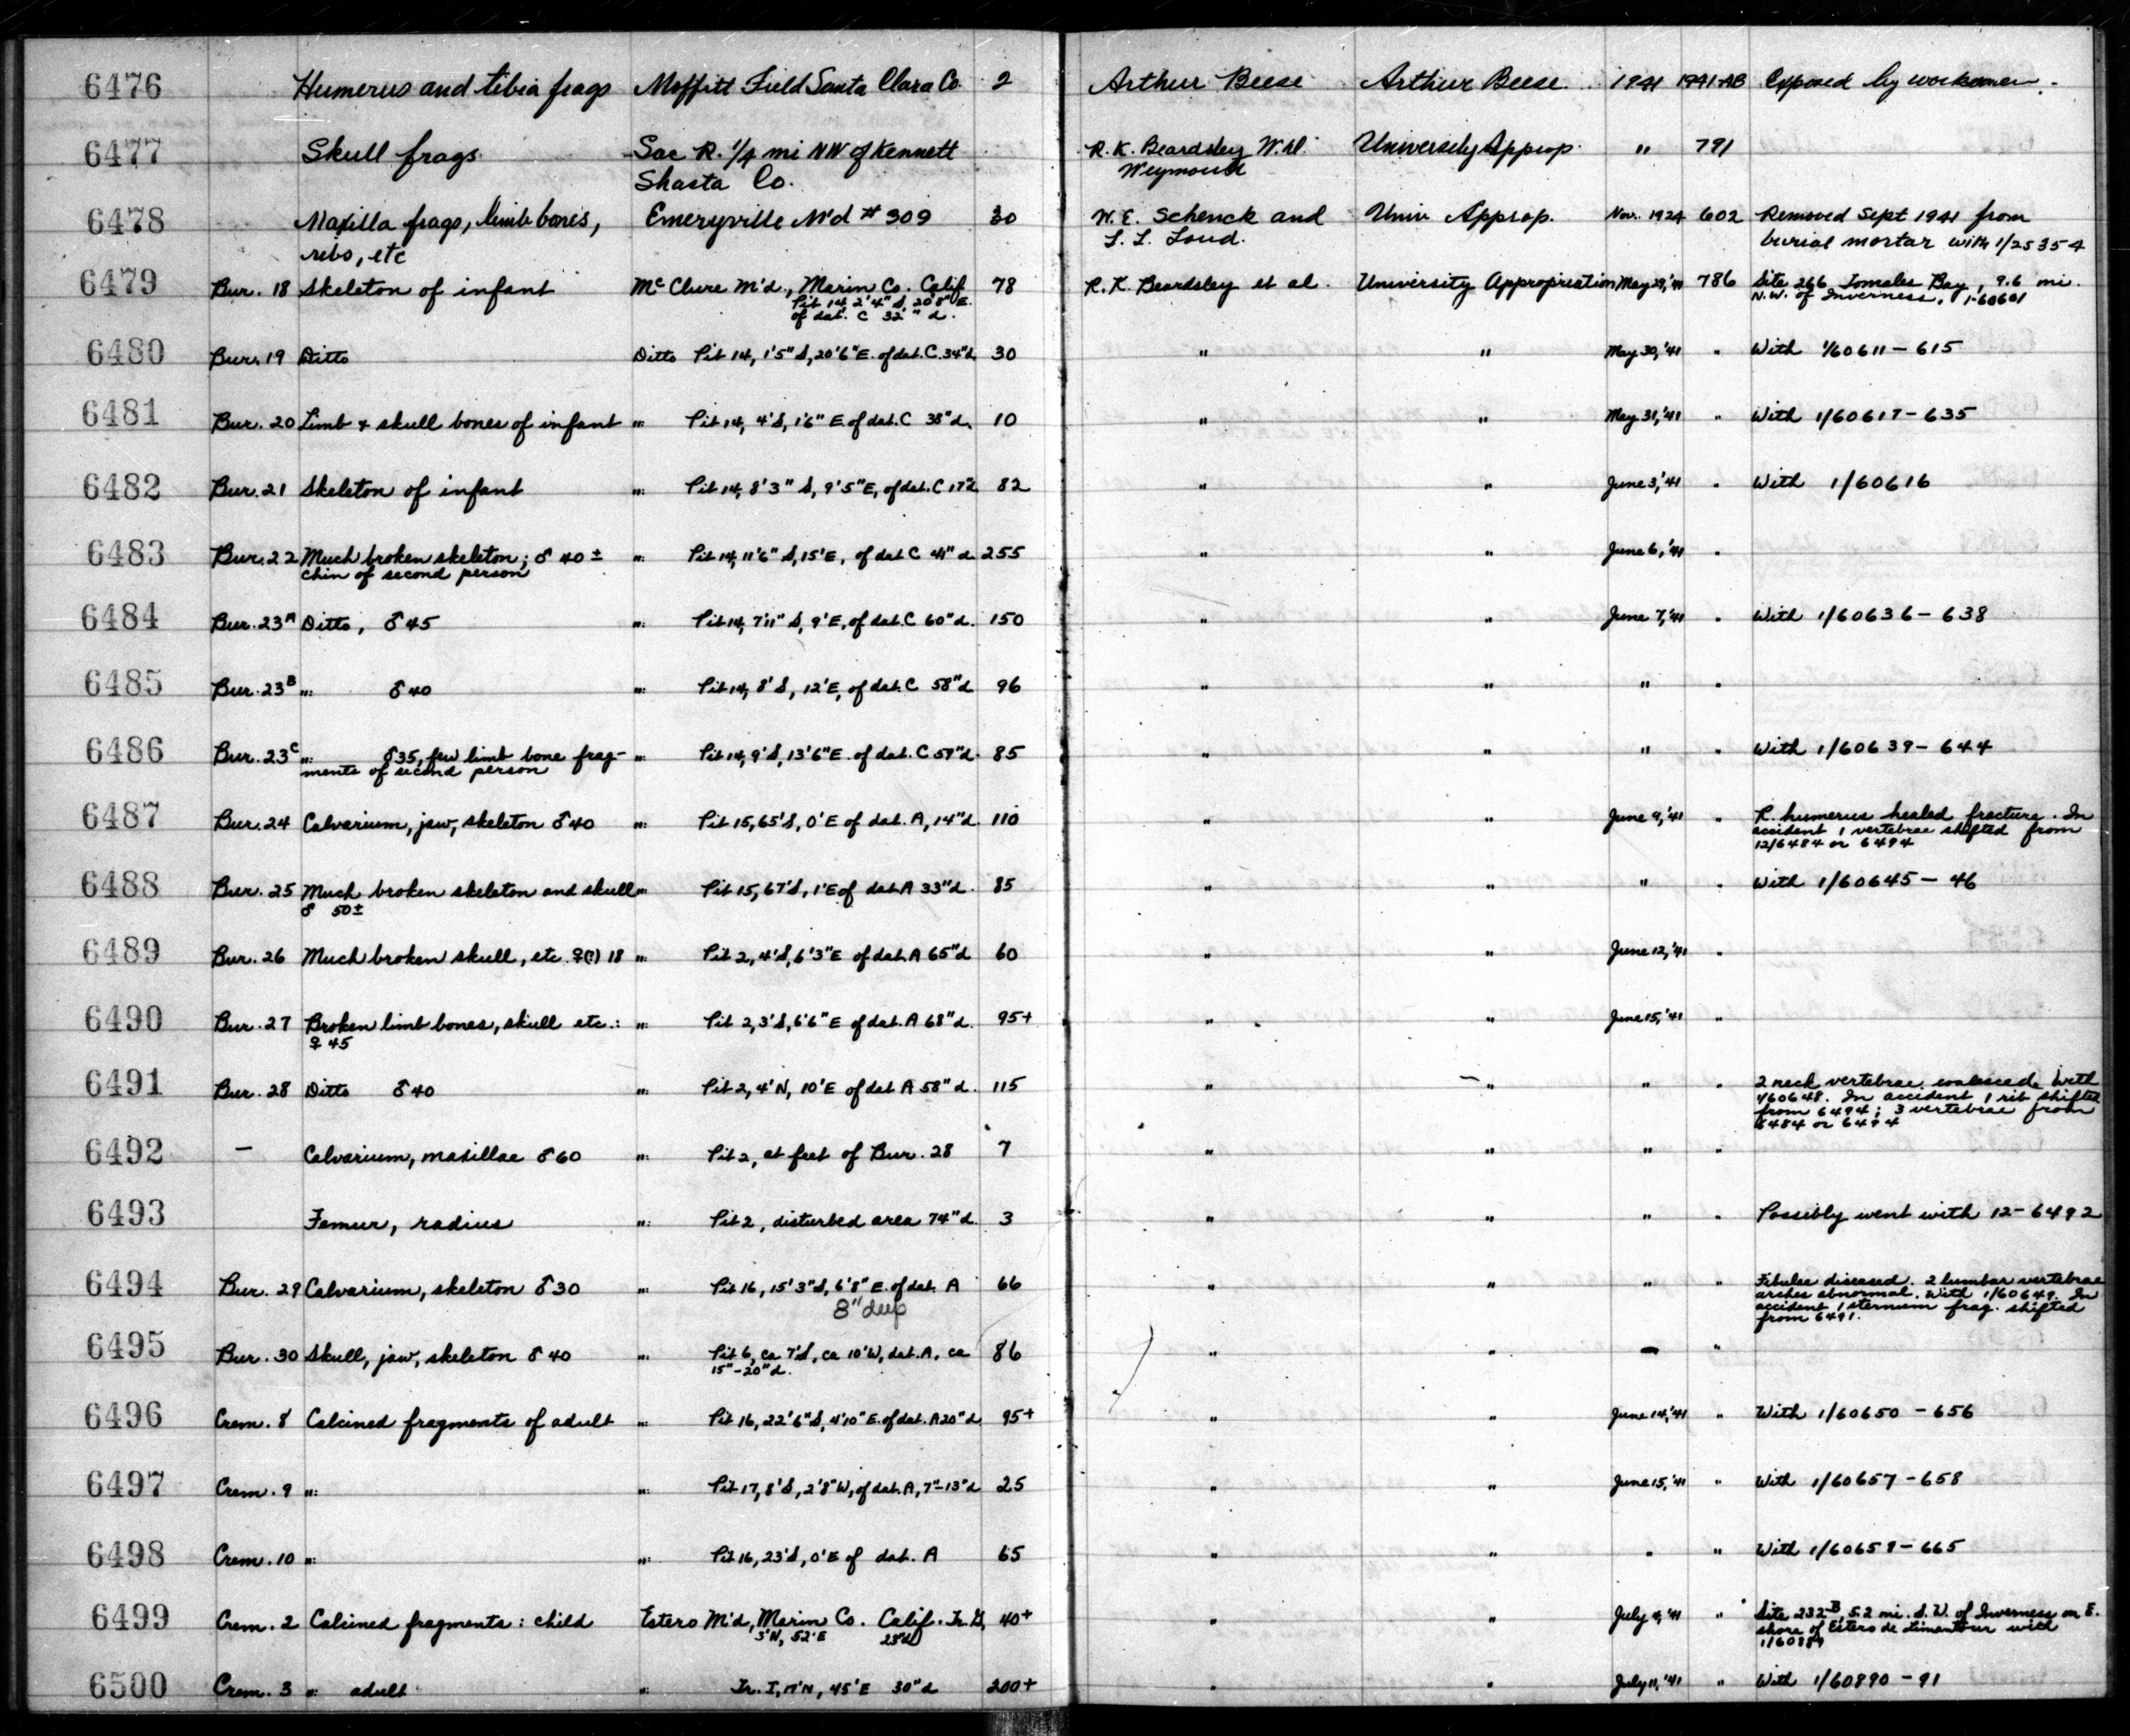 6476 Humerus and tibia frags Moffitt Field Santa Clara Co. 2 Arthur Beese Arthur Beese 1941 1941-AB Exposed by workmen.
6477 Skull frags. Sac R. 1/4 mi NW of Kennett R. K. Beardsley W.D. University Approp. " 791
Shasta Co. Weymouth
6478 Maxilla frags, limb bones, Emeryville M'd # 309 30 W. E. Schenck and Univ Approp. Nov. 1924 602 Removed Sept 1941 from
ribs, etc L. L. Loud. burial mortar with 1/25354
6479 Bur. 18 Skeleton of infant McClure M'd., Marin Co. Calif 78 R. K. Beardsley et al. University Appropriation May 29,'41 786 Site 266 Tomales Bay, 9.6 mi.
Pit 14, 2'4" S, 20'8" E. N.W. of Inverness, 1-60601
of dat. C 32" d.
6480 Bur. 19 Ditto Ditto Pit 14, 1'5" S, 20'6" E. of dat. C. 34" d. 30 " " May 30,'41 " With 1/60611-615
6481 Bur. 20 Limb & skull bones of infant " Pit 14, 4' S, 1'6" E of dat. C 38" d. 10 " " May 31,'41 " With 1/60617-635
6482 Bur. 21 Skeleton of infant " Pit 14, 8'3" S, 9'5" E, of dat. C 17" d 82 " " June 3,'41 " With 1/60616
6483 Bur. 22 Much broken skeleton; ♂ 40 ± " Pit 14, 11'6" S, 15' E, of dat C 41" d 255 " " June 6,'41 "
chin of second person
6484 Bur. 23A Ditto, ♂ 45 " Pit 14, 7'11" S, 9' E, of dat. C 60" d. 150 " " June 7,'41 " With 1/60636-638
6485 Bur. 23B " ♂ 40 " Pit 14, 8' S, 12' E, of dat. C 58" d 96 " " " "
6486 Bur. 23C " ♂ 35, few limb bone frag- " Pit 14, 9' S, 13'6" E. of dat. C 59" d. 85 " " " " With 1/60639-644
ments of second person
6487 Bur. 24 Calvarium, jaw, skeleton ♂ 40 " Pit 15, 65' S, 0' E of dat. A, 14" d 110 " " June 9,'41 " R. humerus healed fracture. In
accident 1 vertebrae shifted from
12/6484 or 6494
6488 Bur. 25 Much broken skeleton and skull " Pit 15, 67' S, 1' E of dat. A 33" d. 85 " " " " With 1/60645-46
♂ 50±
6489 Bur. 26 Much broken skull, etc. ♀(?) 18 " Pit 2, 4' S, 6'3" E of dat. A 65" d 60 " " June 12,'41 "
6490 Bur. 27 Broken limb bones, skull etc.: " Pit 2, 3' S, 6'6" E of dat. A 68" d. 95+ " " June 15,'41 "
♀ 45
6491 Bur. 28 Ditto ♂ 40 " Pit 2, 4' N, 10' E of dat A 58" d. 115 " " " " 2 neck vertebrae coalesced. With
1/60648. In accident 1 rib shifted
from 6494; 3 vertebrae from
6484 or 6494
6492 — Calvarium, maxillae ♂ 60 " Pit 2, at feet of Bur. 28 7 " " " "
6493 Femur, radius " Pit 2, disturbed area 74" d. 3 " " " " Possibly went with 12-6492
6494 Bur. 29 Calvarium, skeleton ♂ 30 " Pit 16, 15'3" S, 6'8" E. of dat. A 66 " " " " Fibulae diseased. 2 lumbar vertebrae
8" deep arches abnormal. With 1/60649. In
accident 1 sternum frag. shifted
from 6491.
6495 Bur. 30 Skull, jaw, skeleton ♂ 40 " Pit 6, ca 7' S, ca 10' W, dat. A, ca 86 " " — "
15"-20" d.
6496 Crem. 8 Calcined fragments of adult " Pit 16, 22'6" S, 4'10" E. of dat. A 20" d 95+ " " June 14,'41 " With 1/60650-656
6497 Crem. 9 " " Pit 17, 8' S, 2'8" W, of dat. A, 7"-13" d 25 " " June 15,'41 " With 1/60657-658
6498 Crem. 10 " " Pit 16, 23' S, 0' E of dat. A 65 " " " " With 1/60659-665
6499 Crem. 2 Calcined fragments: child Estero M'd, Marin Co. Calif. Tr. G, 40+ " " July 9,'41 " Site 232-B, 5.2 mi. S.W. of Inverness on E.
3' N, 52' E 23" d shore of Estero de Limantour with
6500 Crem. 3 " adult " Tr. I, 17' N, 45' E 30" d 200+ " " July 11,'41 " With 1/60890-91